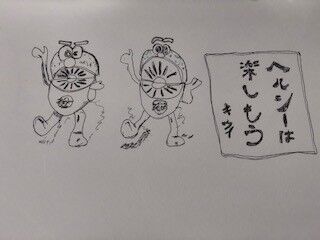 ヘルシーは
楽しもう
キウイ